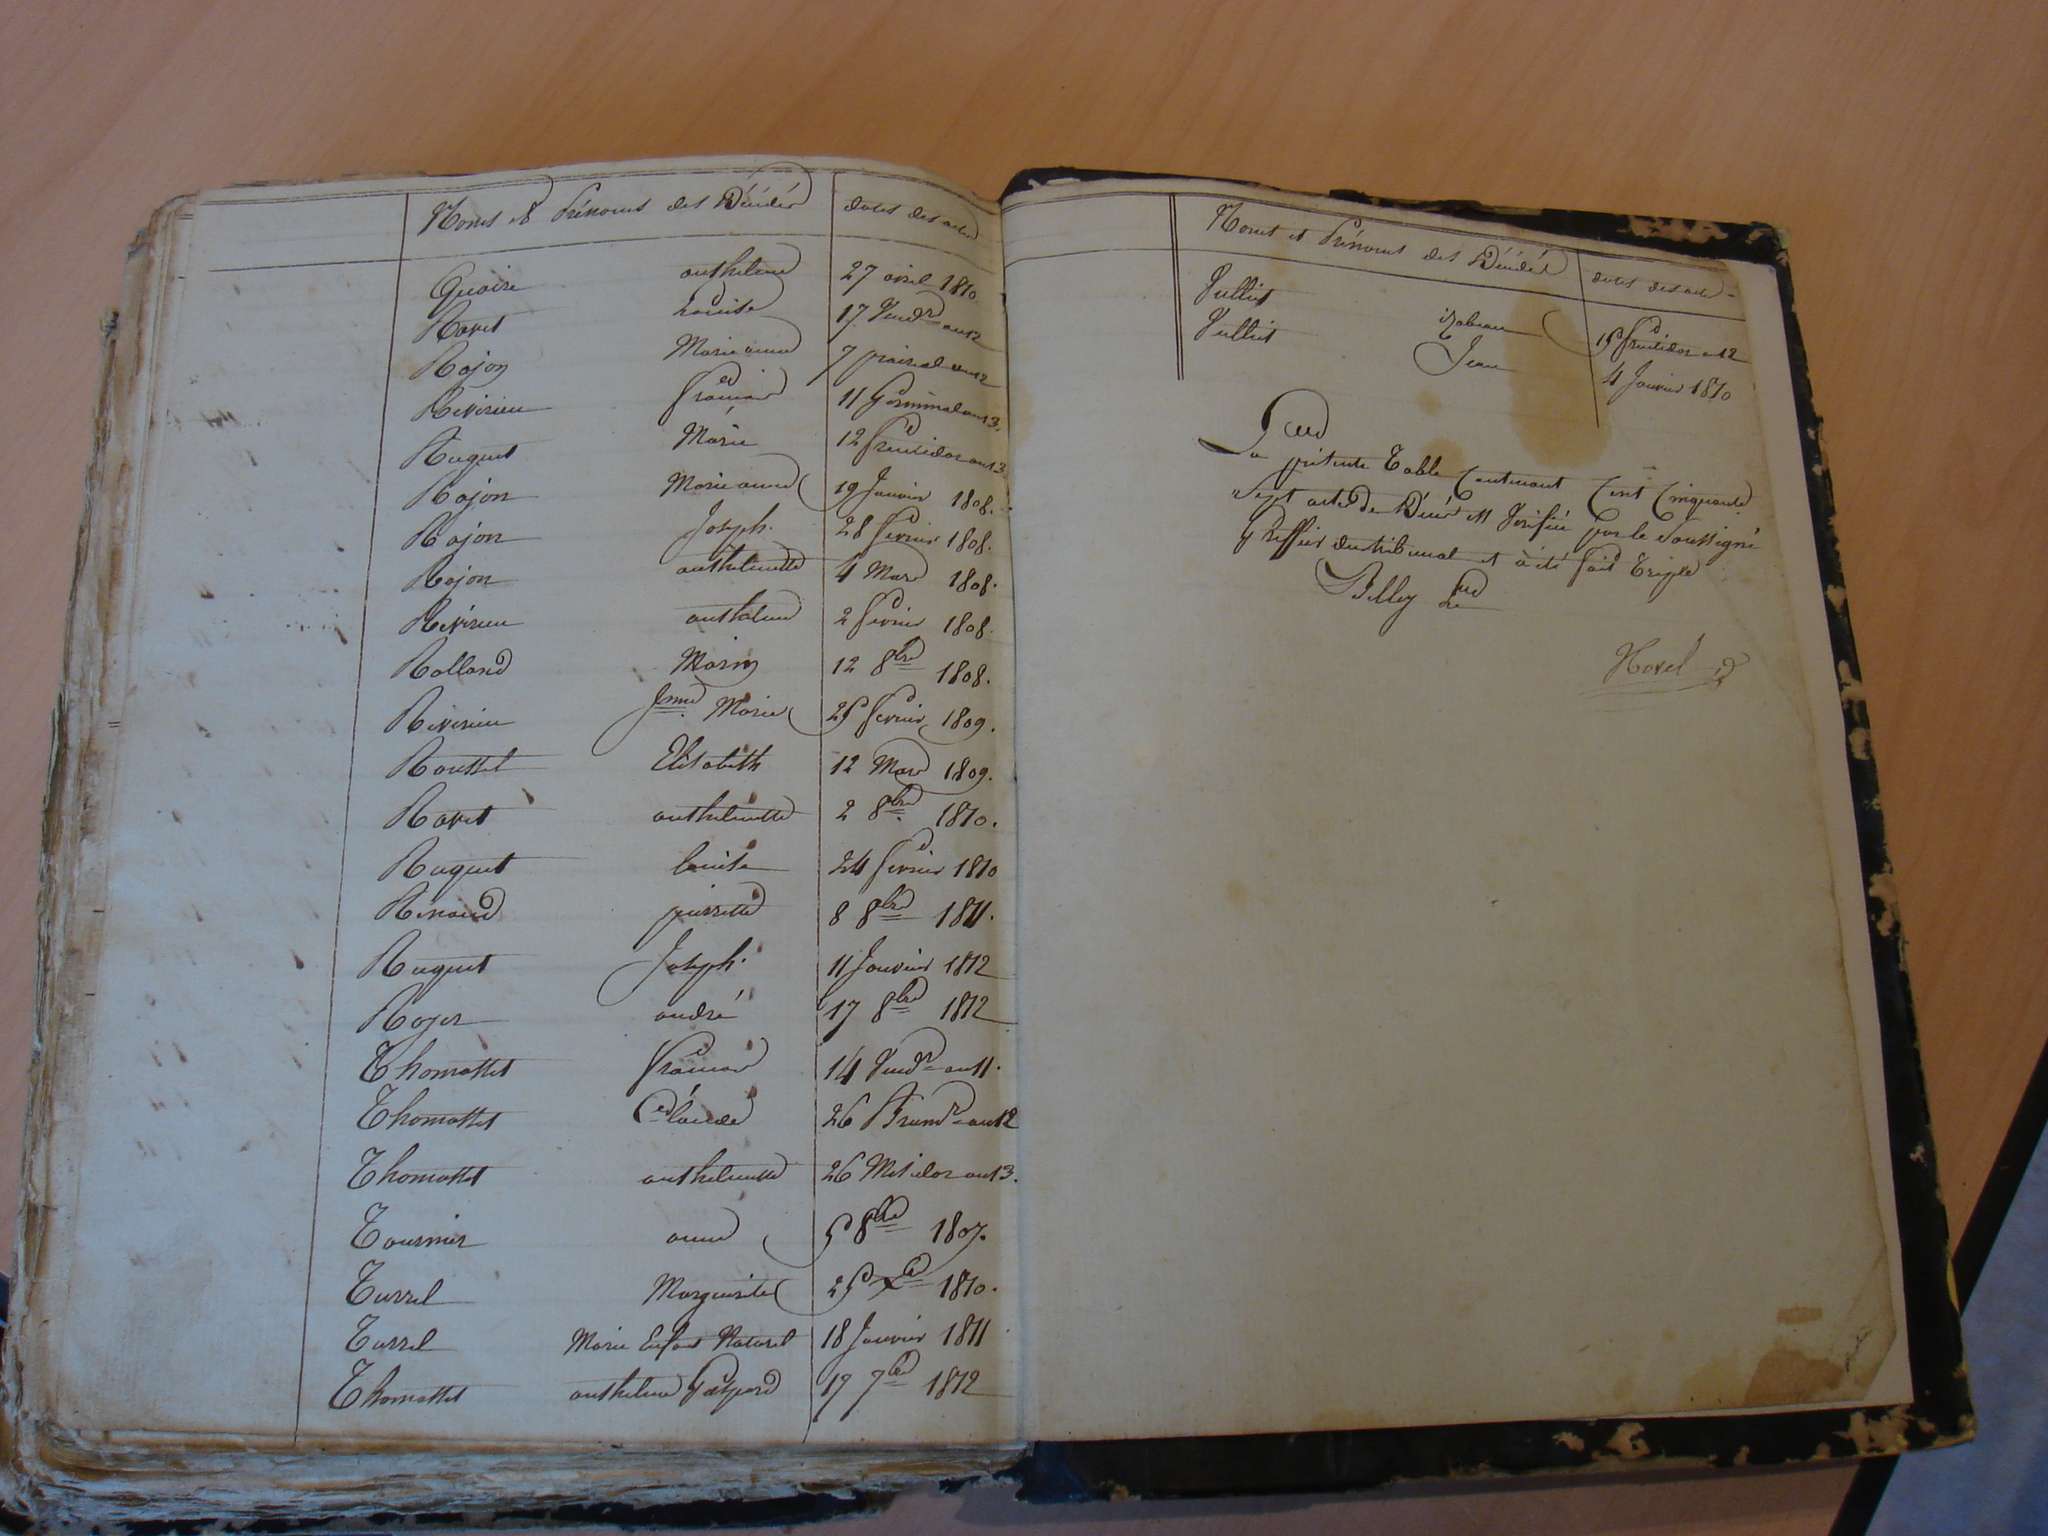 Noms et Prénoms des Décédés dates des actes
Quaire anthelme 27 avril 1810
Ravet Louise 17 Vendre an 12
Rojon Marie anne 7 prairial an 12
Revirieu François 11 Germinal an 13.
Ruguet Marie 12 fructidor an 13
Rojon Marie anne 19 Janvier 1808.
Rojon Joseph. 28 fevrier 1808.
Rojon anthelmette 4 Mars 1808.
Révirieu anthelme 2 fevrier 1808.
Rolland Marin 12 8bre 1808.
Revirieu Jnne Marie 25 fevrier 1809.
Roussel Elisabeth 12 Mars 1809.
Ravet anthelmette 2 8bre 1810.
Ruguet louise 24 fevrier 1810
Renaud pierrette 8 8bre 1811.
Ruguet Joseph. 11 Janvier 1812
Royer andré 17 8bre 1812
Thomasset François 14 Vendre an 11.
Thomasset Claude 26 Brumre an 12
Thomasset anthelmette 26 Messidor an 13.
Tournier anne 5 8bre 1807.
Turrel Marguerite 25 Xbre 1810.
Turrel Marie Enfant Naturel 18 Janvier 1811
Thomasset anthelme Gaspard 17 7bre 1812
Noms et Prénoms des Décédés dates des actes
Vulliet izabeau 15 fructidor an 12
Vulliet Jean 4 Janvier 1810
La présente Table Contenant Cent Cinquante
Sept actes de Décés est Vérifiée par le Soussigné
Greffier du tribunal et à été fait Triple
Belley